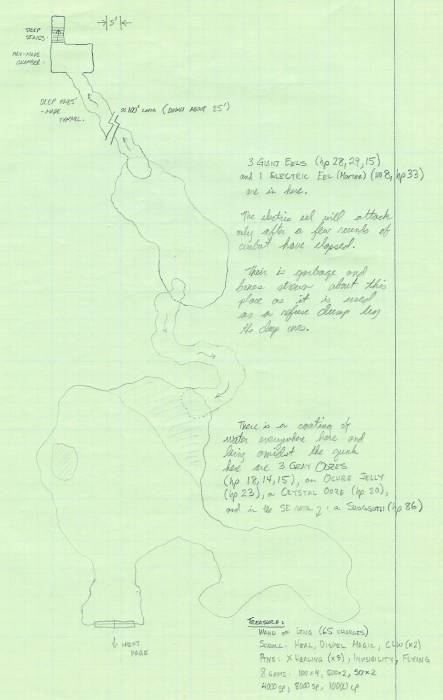 DEEP
STAIRS
5'
MAN-MADE
CHAMBER
DEEP ONES'
-MADE
TUNNEL.
≈100' LONG (DOWN ABOUT 25')
3 GIANT EELS (hp 28, 29, 15)
and 1 ELECTRIC EEL (hp 33)
are in here.
The electric eel will attack
only after a few rounds of
combat have elapsed.
There is garbage and
bones strewn about this
place as it is used
as a refuse dump by
the deep ones.
There is a coating of
water everywhere here and
living amidst the gunk
here are 3 GRAY OOZES
(hp 18, 14, 15), an OCHRE JELLY
(hp 23), a CRYSTAL OOZE (hp 20),
and in the SE a SHOGGOTH (hp 86)
↓ NEXT
PAGE
TREASURE:
WAND OF (65 CHARGES)
SCROLL: HEAL, DISPEL MAGIC, CLW (x2)
POTNS: X HEALING (x3), INVISIBILITY, FLYING
8 GEMS: 100x4, 500x2, 50x2
4000 gp, 8000 sp, 10000 cp